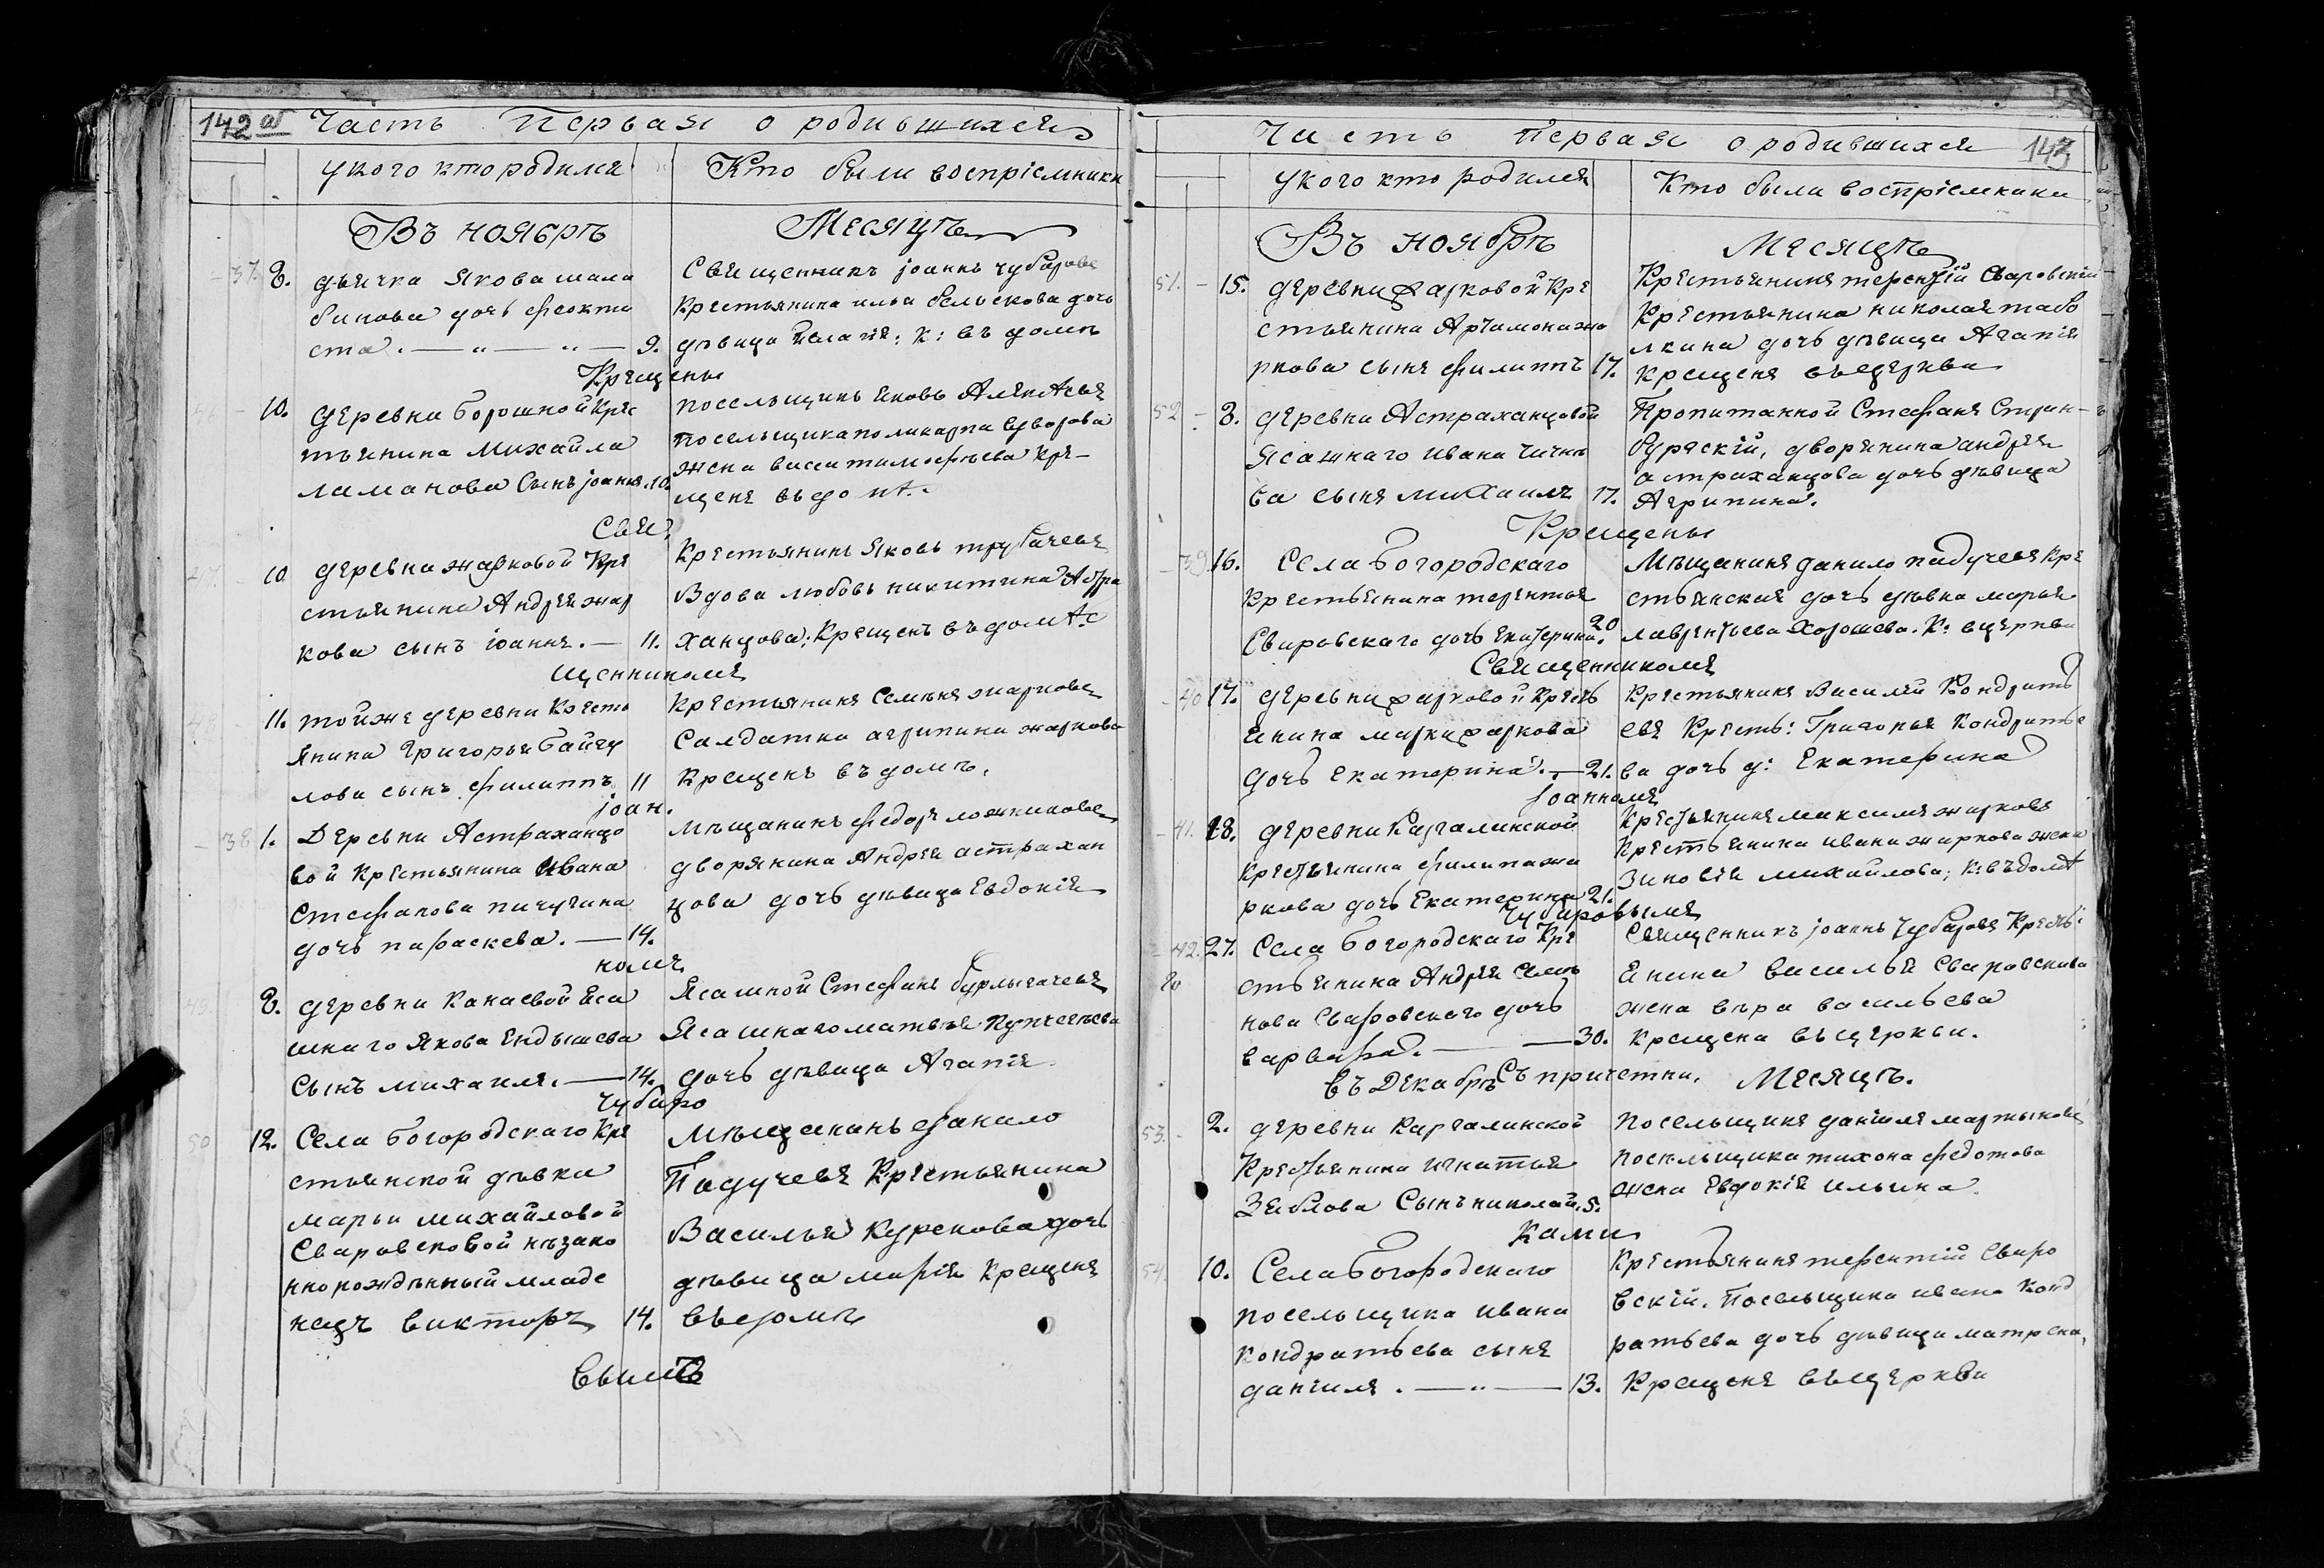 142 об Часть Первая о родившихся
у кого кто родился Кто были воспріемники
Въ ноябрѣ Месяцѣ
37. 8. дьячка Якова шала
бинова дочь феокти
ста. — „ — „ — 9.
Священникъ іоаннъ чубаровъ
Крестьянина ильи бельскова дочь
дѣвица К: въ домѣ
Крещены
10. деревни борошной кресть
тьянина Михайла
ламанова сынъ іоаннъ. 10.
посельщикъ яковъ
посельщика поликарпа суворова
жена васса тимофѣева кре-
щенъ въ домѣ.
Свя
10 деревни жарковой кре
стьянина Андрея жар
кова сынъ іоаннъ. — 11.
Крестьянинъ Яковъ трубачевъ
Вдова любовь никитина Астра
ханцова; Крещенъ въ домѣ
щенникомъ
11. тойже деревни кресть
янина григорья байгу
лова сынъ филиппъ 11
Крестьянинъ Семенъ жарковъ
Салдатка агрипина жаркова
Крещенъ въ домѣ.
іоан.
38 1. Деревни Астраханцо
вой крестьянина ивана
Стефанова пичугина
дочь параскева. — 14.
мѣщанинъ федоръ ложниковъ
дворянина Андрея астрахан
цова дочь дѣвица Евдокія
номъ
49. 8. деревни канаевой яса
шнаго якова ендышева
Сынъ михаилъ. — 14.
Ясашной Стефанъ бурлыгачевъ
Ясашнаго матвѣя
дочь дѣвица Агапія
чубаро
50 12. Села богородскаго кре
стьянской дѣвки
марьи михайловой
Сваровсковой нѣзако
ннорождѣнный младе
нецъ викторъ 14.
мѣщанинъ данило
Падучевъ Крестьянина
Василья Куренкова дочь
дѣвица марія крещенъ
въ домѣ
вымъ
Часть Первая о родившихся 143
у кого кто родился Кто были воспріемники
Въ ноябрѣ Месяцѣ
51. 15. деревни жарковой кре
стьянина Артамона жа
ркова сынъ филиппъ 17.
Крестьянинъ терентій Сваровскій
Крестьянина николая табо
лкина дочь дѣвица Агапія
крещенъ въ церкви
52 8. деревни Астраханцовой
ясашнаго ивана чичке
ва сынъ михаилъ 17.
Пропитанной Стефанъ
дворянина андрея
астраханцова дочь дѣвица
Агрипина.
Крещены
39 16. Села богородскаго
крестьянина терентья
Сваровскаго дочь Екатерина. 20
Мѣщанинъ данило падучевъ кре
стьянская дочь дѣвка марья
лаврентьева Хорошева. К: в церкви
Священникомъ
40 17. деревни жарковой кресть
янина марка жаркова
дочь Екатерина. — 21.
Крестьянинъ Василій Кондрать
евъ Кресть: Григорья Кондратье
ва дочь д: Екатерина
іоанномъ
41. 18. деревни Каргалинской
крестьянина филипа жа
ркова дочь Екатерина 21.
Крестьянинъ максимъ жарковъ
крестьянина ивана жаркова жена
Зиновія михайлова; К: въ домѣ
чубаровымъ
42. 27. Села богородскаго кре
стьянина Андрея Семе
нова Сваровскаго дочь
варвара. — — 30.
Священникъ іоаннъ Чубаровъ Кресть:
янина василья Сваровскова
жена вѣра васильева
крещена въ церкви.
Съ причетни.
въ Декабрѣ Месяцѣ.
53. 2. деревни Каргалинской
Крестьянина игнатья
Зяблова Сынъ николай. 5.
посельщикъ даніилъ мартыновъ
посельщика тихона федотова
жена Евдокія ильина
ками
54. 10. Села богородскаго
посельщика ивана
кондратьева сынъ
даніилъ. — „ — 13.
Крестьянинъ терентій Сваро
вскій. Посельщика ивана Конд
ратьева дочь дѣвица матрена,
Крещенъ въ церкви